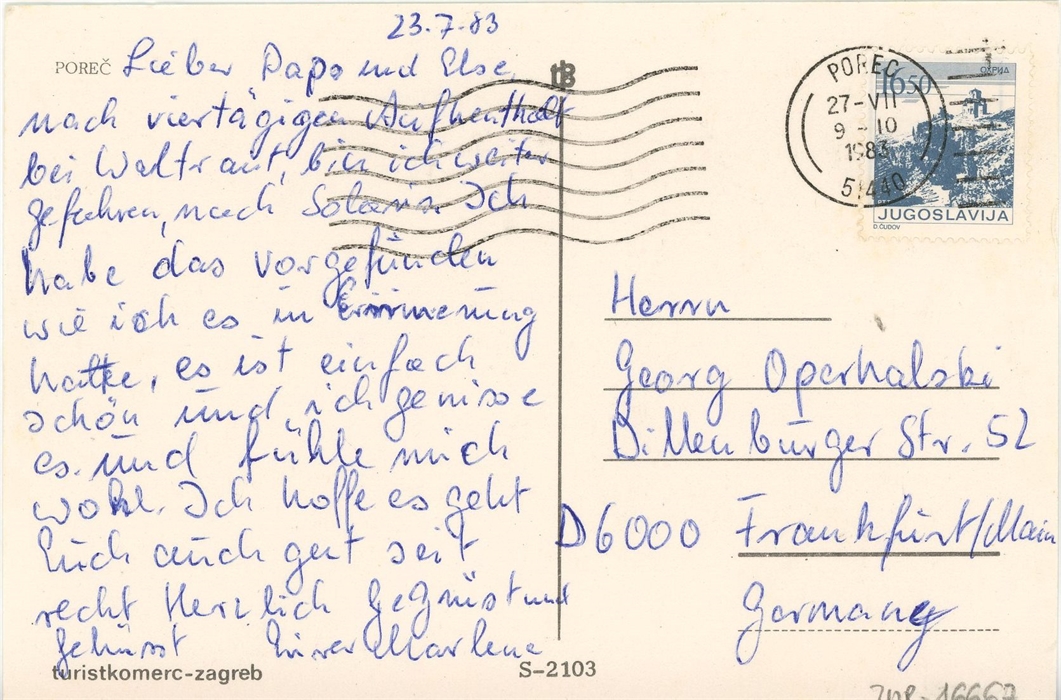 23.7.83
POREČ
Lieber Papa und Else
nach viertägigen Aufhenthalt
bei Waltraut, bin ich weiter
gefahren, nach Solaris. Ich
habe das vorgefunden
wie ich es in Erinnerung
hatte, es ist einfach
schön und ich geniese
es. und fühle mich
wohl. Ich hoffe es geht
Euch auch gut seit
recht Herzlich Gegrüst und
geküsst Eure Marlene
turistkomerc-zagreb
S-2103
POREČ
27-VII
9-10
1983
51440
16.50
JUGOSLAVIJA
D. ČUDOV
Herrn
Georg Operhalski
Dillenburger Str. 52
D6000 Frankfurt/Main
Germany